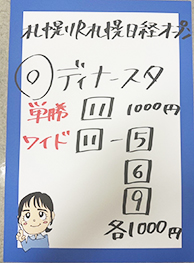 札幌11R札幌日経オープン
◎ディナースタ
単勝 11 1000円
ワイド 11-5
6
9
各1000円